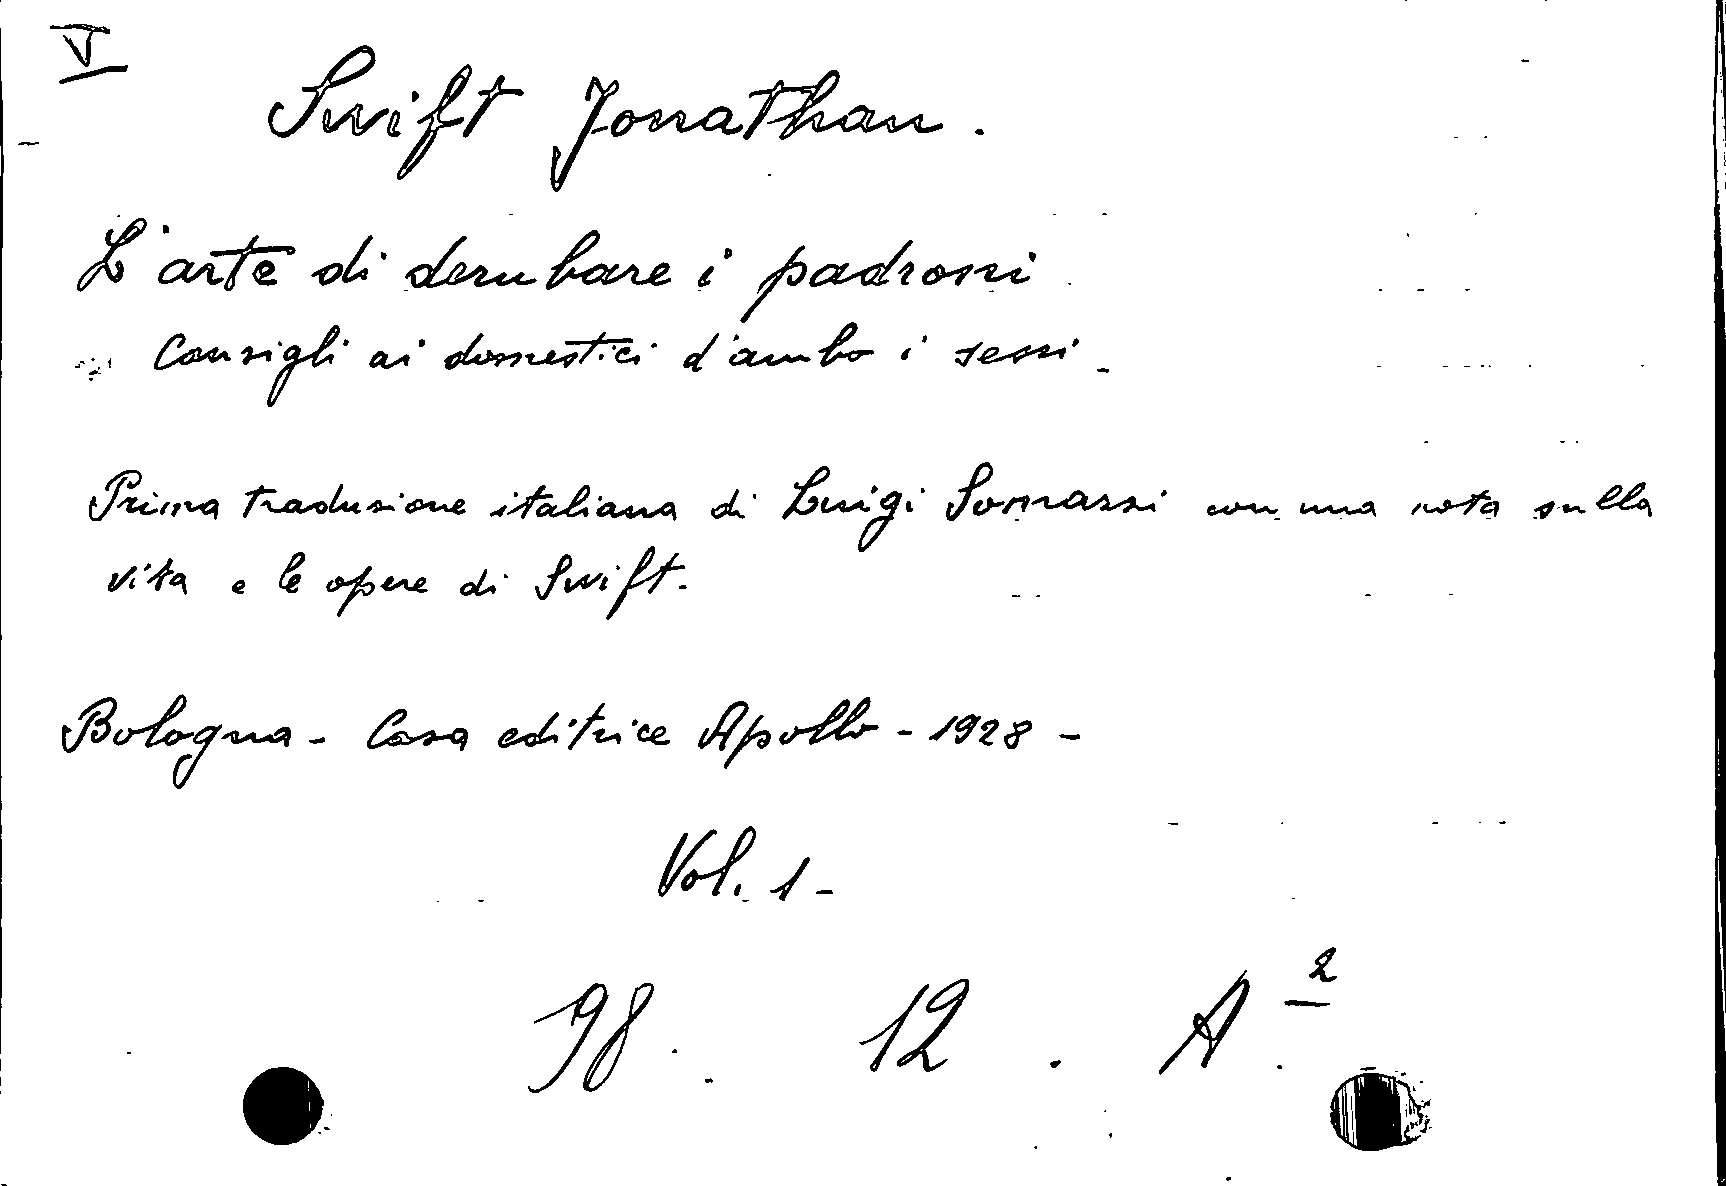 V
Swift Jonathan.
L'arte di derubare i padroni
Consigli ai domestici d'ambo i sessi -
Prima traduzione italiana di Luigi Somazzi con una nota sulla
vita e le opere di Swift.
Bologna - Casa editrice Apollo - 1928 -
Vol. 1 -
98. 12. A 2